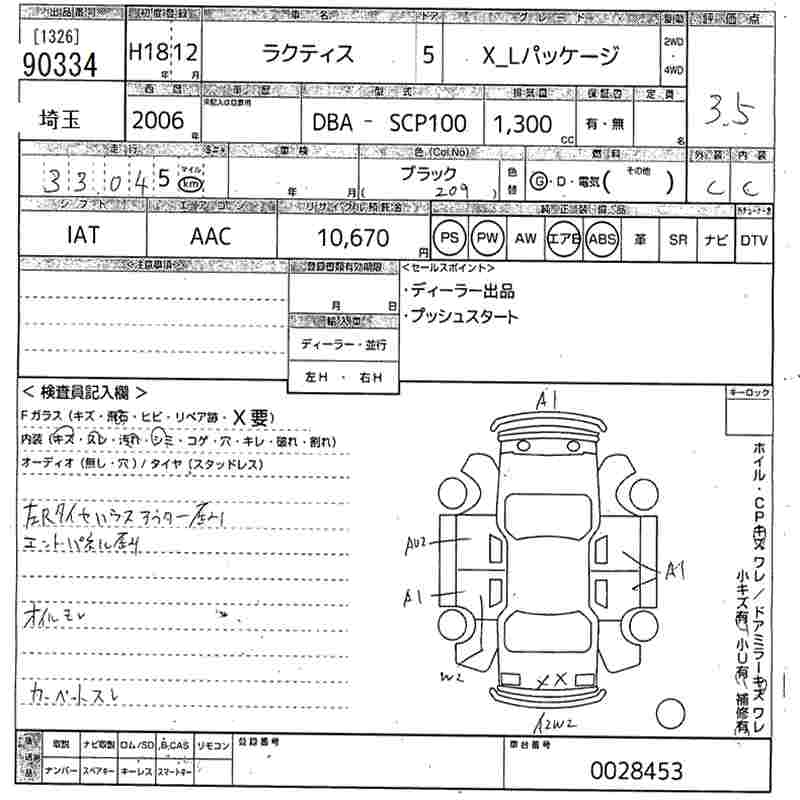 出品番号 初度登録 車名 ドア グレード 駆動 評価点
[1326]
90334 H18 12 ラクティス 5 X_Lパッケージ 2WD・4WD 3.5
年 月
西暦 車歴 型式 排気量 保証書 定員
未記入は自家用
埼玉 2006年 DBA - SCP100 1,300 CC 有・無 名
走行 車検 色 (Col.No) 燃料 その他 外装 内装
3 3 0 4 5 マイル km 年 月 ブラック 色替 Ⓖ・D・電気( ) C C
( 209 )
シフト エアコン リサイクル預託金 純正装備品
IAT AAC 10,670円 PS PW AW エアB ABS 革 SR ナビ DTV
<注意事項> 登録書類有効期限 <セールスポイント>
月 日 ・ディーラー出品
輸入車 ・プッシュスタート
ディーラー・並行
左H ・ 右H
< 検査員記入欄 > キーロック
Fガラス (キズ・飛石・ヒビ・リペア跡・X要)
内装 (キズ・スレ・汚れ・シミ・コゲ・穴・キレ・破れ・割れ)
オーディオ (無し・穴) / タイヤ (スタッドレス)
左Rタイヤハウスアウター歪み
エンドパネル歪み
オイルモレ
カーペットスレ
A1
AU2
A1
A1
W2
X X
A2W2
ホイル・CPキズワレ/ドアミラーキズワレ
小キズ有 小U有 補修有
後送品 取説 ナビ取説 ロム/SD B.CAS リモコン 登録番号 車台番号
ナンバー スペアキー キーレス スマートキー 0028453